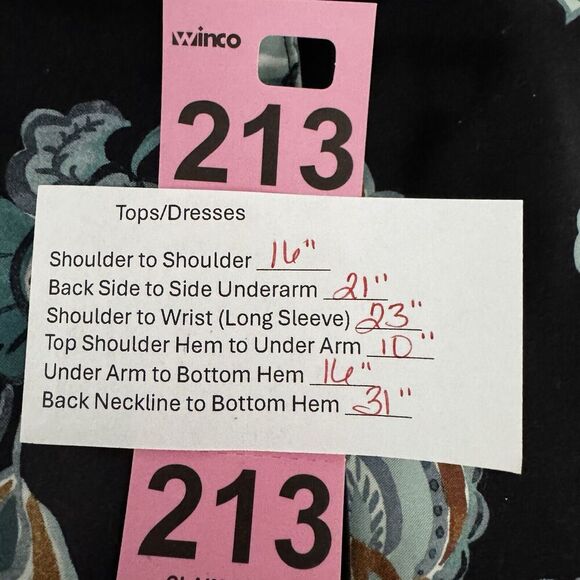 Winco
213
Tops/Dresses
Shoulder to Shoulder 16"
Back Side to Side Underarm 21"
Shoulder to Wrist (Long Sleeve) 23"
Top Shoulder Hem to Under Arm 10"
Under Arm to Bottom Hem 16"
Back Neckline to Bottom Hem 31"
213